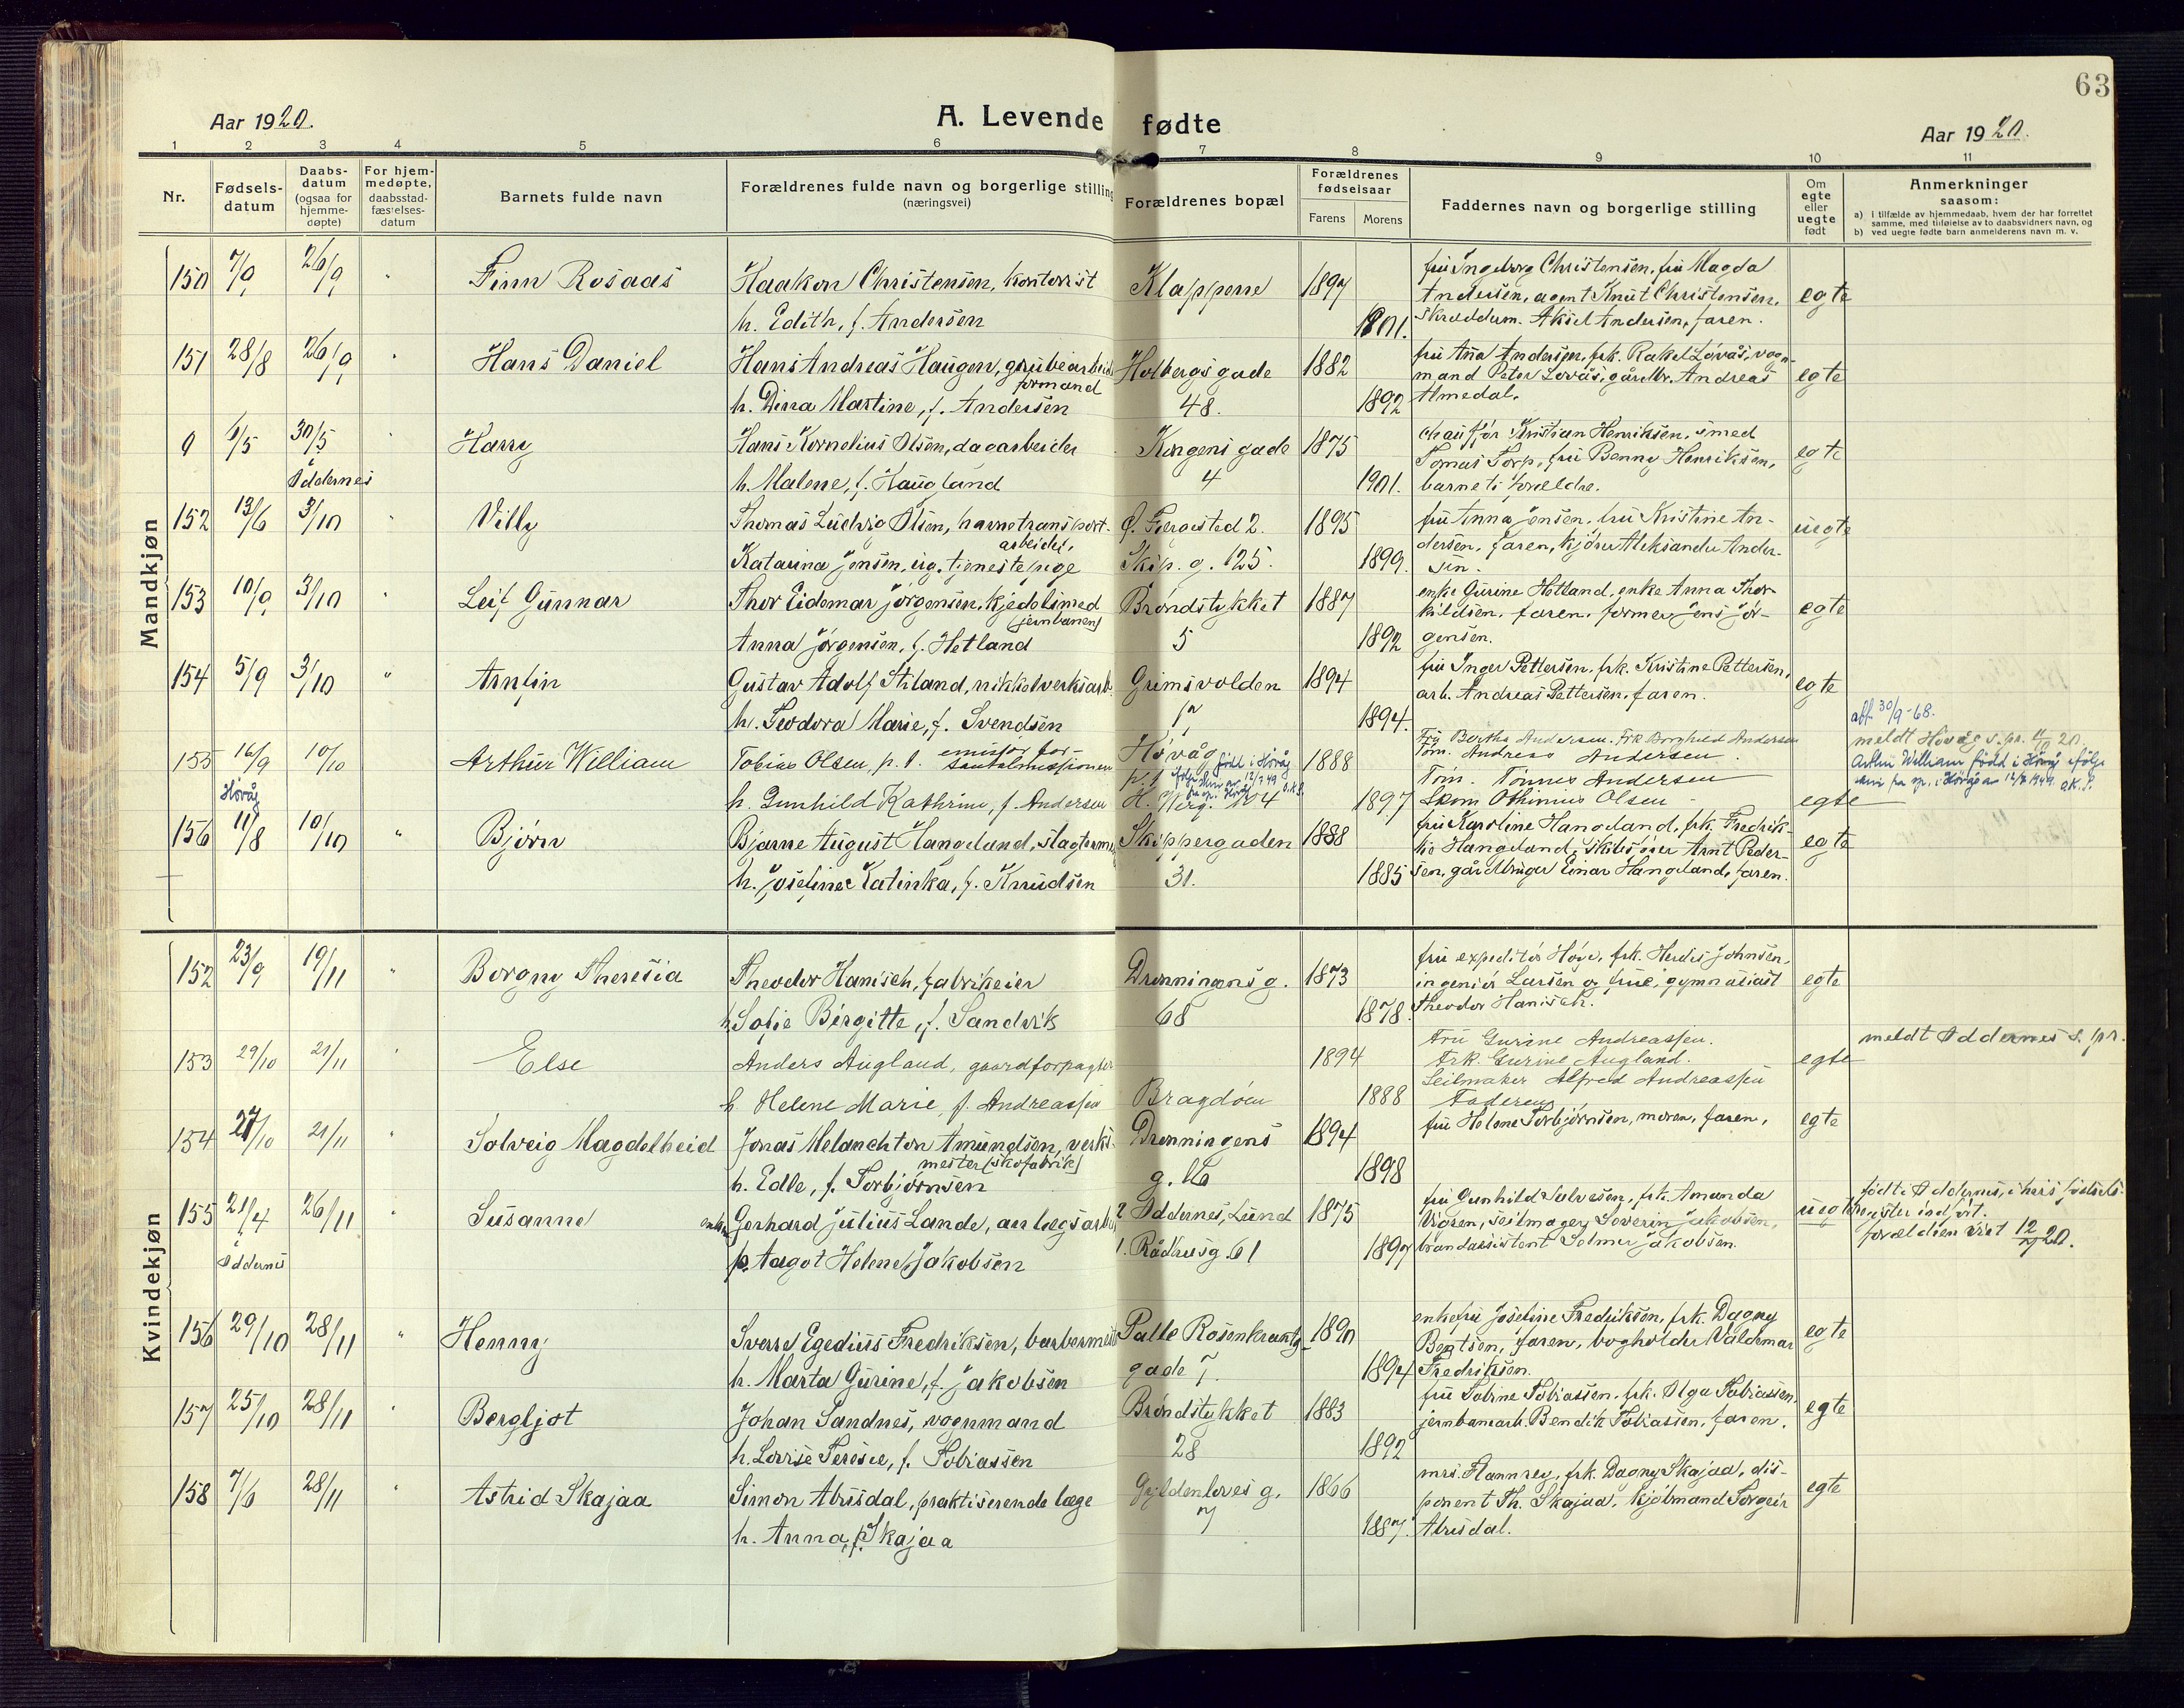 63
Aar 1920.
A. Levende fødte
Aar 1920.
1 2 3 4 5 6 7 8 9 10 11
Nr.
Fødsels-
datum
Daabs-
datum
(ogsaa for
hjemme-
døpte)
For hjem-
medøpte,
daabsstad-
fæstelses-
datum
Barnets fulde navn
Forældrenes fulde navn og borgerlige stilling
(næringsvei)
Forældrenes bopæl
Forældrenes
fødselsaar
Farens Morens
Faddernes navn og borgerlige stilling
Om
egte
eller
uegte
født
Anmerkninger
saasom:
a) i tilfælde av hjemmedaab, hvem der har forrettet
samme, med tilføielse av to daabsvidners navn, og
b) ved uegte fødte barn anmelderens navn m. v.
Mandkjøn
150 7/9 26/9 " Finn Rosaas
Haakon Christensen, kontorist
h. Edith, f. Andersen
Klappene 1897
1901.
fru Ingeborg Christensen, fru Magda
Andersen, agent Knut Christensen,
skræddum. Aksel Andersen, faren.
egte
151 28/8 26/9 " Hans Daniel
Hans Andreas Haugen, grubearbeid
formand
h. Dina Martine, f. Andersen
Holbergs gade
48. 1882
1892
fru Ana Andersen, frk. Rakel Lovås, vogn-
mand Peter Lovås, gårdbr. Andreas
Almedal.
egte
9 6/5 30/5 " Harry
Oddernes
Hans Kornelius Olsen, dagarbeider
h. Malene, f. Haugland
Kongens gade
4 1875
1901.
chauffør Kristian Henriksen, smed
Tomas Torp, fru Benny Henriksen,
barnets forældre.
egte
152 13/6 3/10 Villy
Thomas Ludvig Olsen, havnetransport-
arbeider,
Katarina Jensen, ug. tjenestepige
f. Fiergsted 2.
Skip. g. 125. 1895
1899.
fru Anna Jensen, fru Kristine An-
dersen, faren, kjører Aleksander Ander-
sen.
uegte
153 10/9 3/10 " Leif Gunnar
Thor Eidemar Jørgensen, kjedelsmed
(jernbanen)
Anna Jørgensen, f. Hetland
Brøndstykket
5 1887
1892
enke Gurine Hetland, enke Anna Thor-
kildsen, faren, former Jens Jør-
gensen.
egte
154 5/9 3/10 " Arnfin
Gustav Adolf Stiland, nikkelverksarb.
h. Teodora Marie, f. Svendsen
Grimsvolden
1894
1894.
fru Inger Pettersen, frk. Kristine Pettersen,
arb. Andreas Pettersen, faren.
egte
155 16/9 10/10 Arthur William
Høvåg
Tobias Olsen, p. t. emissær for
Santalmissionen
h. Gunhild Kathrine, f. Andersen
Høvåg
p. t.
H. Werg. 4
født i Høvåg
1888
1897
Fru Bertha Andersen. Frk Borghild Andersen
Tøm. Andreas Andersen
Tøm. Tønnes Andersen
Skom Othinius Olsen
egte
att. 30/9-68.
meldt Høvåg s. pr. 11/11 20.
Arthur William født i Høvåg ifølge
skriv fra spr. i Høvåg av 12/7 1949. O.K.S.
156 11/8 10/10 " Bjørn
Bjarne August Hangeland, slagterme
h. Josefine Katinka, f. Knudsen
Skippergaden
31. 1888
1885
fru Karoline Hangeland, frk. Fredrik-
ke Hangeland, skibsfører Arnt Peder-
sen, gårdbruger Einar Hangeland, faren.
egte
Kvindekjøn
152 23/9 19/11 " Borgny Theresia
Theodor Hanisch, fabrikeier
h. Sofie Birgitte, f. Sandvik
Dronningens g.
68 1873
1878.
fru expeditør Høye, frk. Herdis Johnsen,
ingeniør Larsen og frue, gymnasiast
Theodor Hanisch.
egte
153 29/10 21/11 " Else
Anders Augland, gaardforpagter
h. Helene Marie f. Andreassen
Bragdøen
1894
1888
Fru Gurine Andreassen.
Frk. Gurine Augland.
Seilmaker Alfred Andreassen
Faderen
egte
meldt Oddernes s. pr.
154 27/10 21/11 " Solveig Magdelheid
Jonas Melanchton Amundsen, verks-
mester (skofabrik)
h. Edle, f. Torbjørnsen
Dronningens
g. 1894
1898
fru Helene Torbjørnsen, moren, faren,
egte
155 21/4 26/11 " Susanne
Oddernes
enkem. Gerhard Julius Lande, anlægsarb.
p. Aagot Helene Jakobsen
2 Oddernes, Lund
1. Rådhusg. 61 1875
1897
fru Gunhild Salvesen, frk. Amanda
Vigren, seilmager Severin Jakobsen,
brandassistent Selmer Jakobsen.
uegte
født i Oddernes, i hvis fødsels-
register indført.
forældren viet 12/7 20.
156 29/10 28/11 " Henny
Sverre Egedius Fredriksen, barbermester
h. Marta Gurine, f. Jakobsen
Palle Rosenkrantz
gade 7. 1890
1894
enkefru Josefine Fredriksen, frk. Dagny
Bentsen, faren, bogholder Valdemar
Fredriksen.
egte
157 25/10 28/11 " Bergljot
Johan Sandnes, vognmand
h. Lovise Terese, f. Tobiassen
Brøndstykket
28 1883
1892
fru Sabine Tobiassen, frk. Olga Tobiassen,
jernbanearb. Bendik Tobiassen, faren.
egte
158 7/6 28/11 " Astrid Skajaa
Simon Abusdal, praktiserende læge
h. Anna, f. Skajaa
Gyldenløves g.
7 1866
1887.
mrs. Hannrey, frk. Dagny Skajaa, dis-
ponent Th. Skajaa, kjøbmand Torgeir
Abusdal.
egte